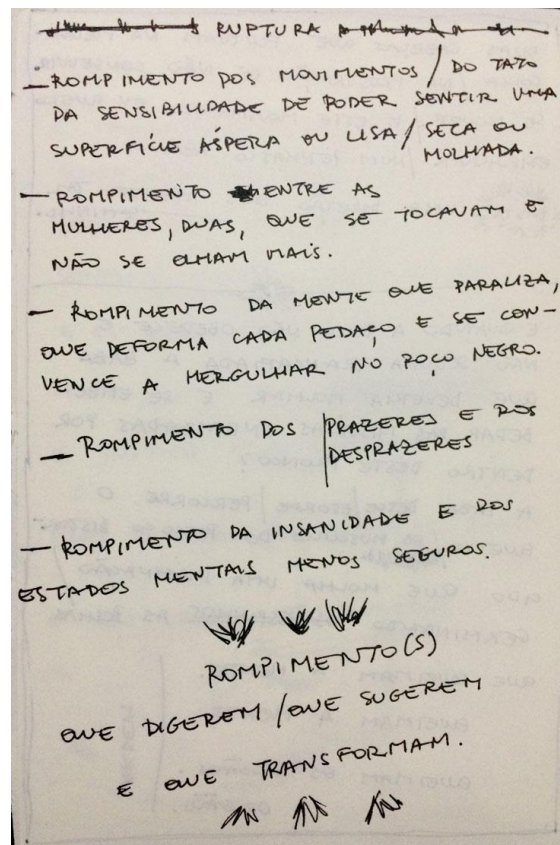 RUPTURA
- ROMPIMENTO DOS MOVIMENTOS / DO TATO
DA SENSIBILIDADE DE PODER SENTIR UMA
SUPERFÍCIE ÁSPERA OU LISA / SECA OU
MOLHADA.
- ROMPIMENTO ENTRE AS
MULHERES, DUAS, QUE SE TOCAVAM E
NÃO SE OLHAM MAIS.
- ROMPIMENTO DA MENTE QUE PARALIZA,
QUE DEFORMA CADA PEDAÇO E SE CON-
VENCE A MERGULHAR NO POÇO NEGRO.
- ROMPIMENTO DOS | PRAZERES E DOS
DESPRAZERES
- ROMPIMENTO DA INSANIDADE E DOS
ESTADOS MENTAIS MENOS SEGUROS.
ROMPIMENTO(S)
QUE DIGEREM / QUE SUGEREM
E QUE TRANSFORMAM.